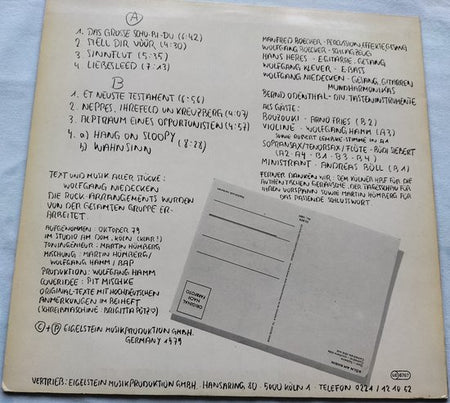 A
1. DAS GROSSE SCHU-BI-DU (6:42)
2. STELL DIR VÜÜR (4:30)
3. SINNFLUT (5:35)
4. LIEBESLEED (7:13)
B
1. ET NEUSTE TESTAMENT (6:56)
2. NEPPES, IHREFELD UN KREUZBERG (4:07)
3. ALPTRAUM EINES OPPORTUNISTEN (4:57)
4. a) HANG ON SLOOPY
b) WAHNSINN (8:22)
TEXT UND MUSIK ALLER STÜCKE:
WOLFGANG NIEDECKEN
DIE ROCK-ARRANGEMENTS WURDEN
VON DER GESAMTEN GRUPPE ER-
ARBEITET.
AUFGENOMMEN: OKTOBER 79
IM STUDIO AM DOM, KÖLN (KLAR!)
TONINGENIEUR: MARTIN HÖMBERG
MISCHUNG: MARTIN HÖMBERG/
WOLFGANG HAMM / BAP
PRODUKTION: WOLFGANG HAMM
COVERIDEE: PIT MISCHKE
ORIGINAL-TEXTE MIT HOCHDEUTSCHEN
ANMERKUNGEN IM BEIHEFT
(SCHREIBMASCHINE: BRIGITTA
C + P EIGELSTEIN MUSIKPRODUKTION GMBH.
GERMANY 1979
MANFRED BOECKER - PERCUSSION, EFFEKTE, GESANG
WOLFGANG BOECKER - SCHLAGZEUG
HANS HERES - E-GITARRE, GESANG
WOLFGANG KLEVER - E-BASS
WOLFGANG NIEDECKEN - GESANG, GITARREN
MUNDHARMONIKAS
BERND ODENTHAL - DIV. TASTENINSTRUMENTE
ALS GÄSTE:
BOUZOUKI - ARNO FRIES (B2)
VIOLINE - WOLFGANG HAMM (A3)
STIMME IN A4
SOPRANSAX/TENORSAX/FLÖTE - BÜDI SIEBERT
(A2 - A4 - B1 - B3 - B4)
MINISTRANT - ANDREAS BÖLL (B1)
FERNER DANKEN WIR: DEM KÖLNER HBF FÜR DIE
AUTHENTISCHEN GERÄUSCHE, DER TAGESSCHAU FÜR
IHREN VORSPANN SOWIE MARTIN HÖMBERG FÜR
DAS PASSENDE SCHLUSSWORT.
ORIGINAL
NACH
VERTRIEB: EIGELSTEIN MUSIKPRODUKTION GMBH. HANSARING, 80 - 5000 KÖLN 1 - TELEFON 0221 / 12 10 62